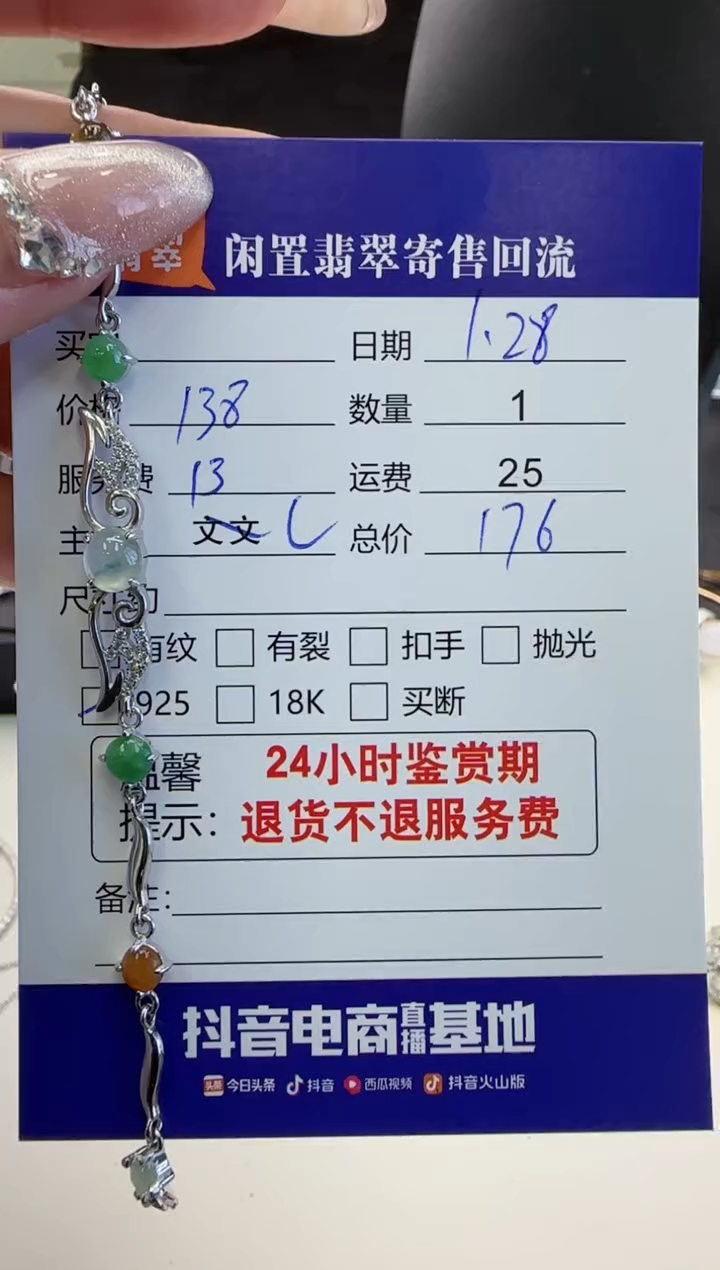 翡翠 闲置翡翠寄售回流
买 日期 1.28
价格 138 数量 1
服务费 13 运费 25
主 文文 L 总价 176
尺寸约
有纹 有裂 扣手 抛光
925 18K 买断
温馨 24小时鉴赏期
提示: 退货不退服务费
备注:
抖音电商直播基地
头条 今日头条 抖音 西瓜视频 抖音火山版